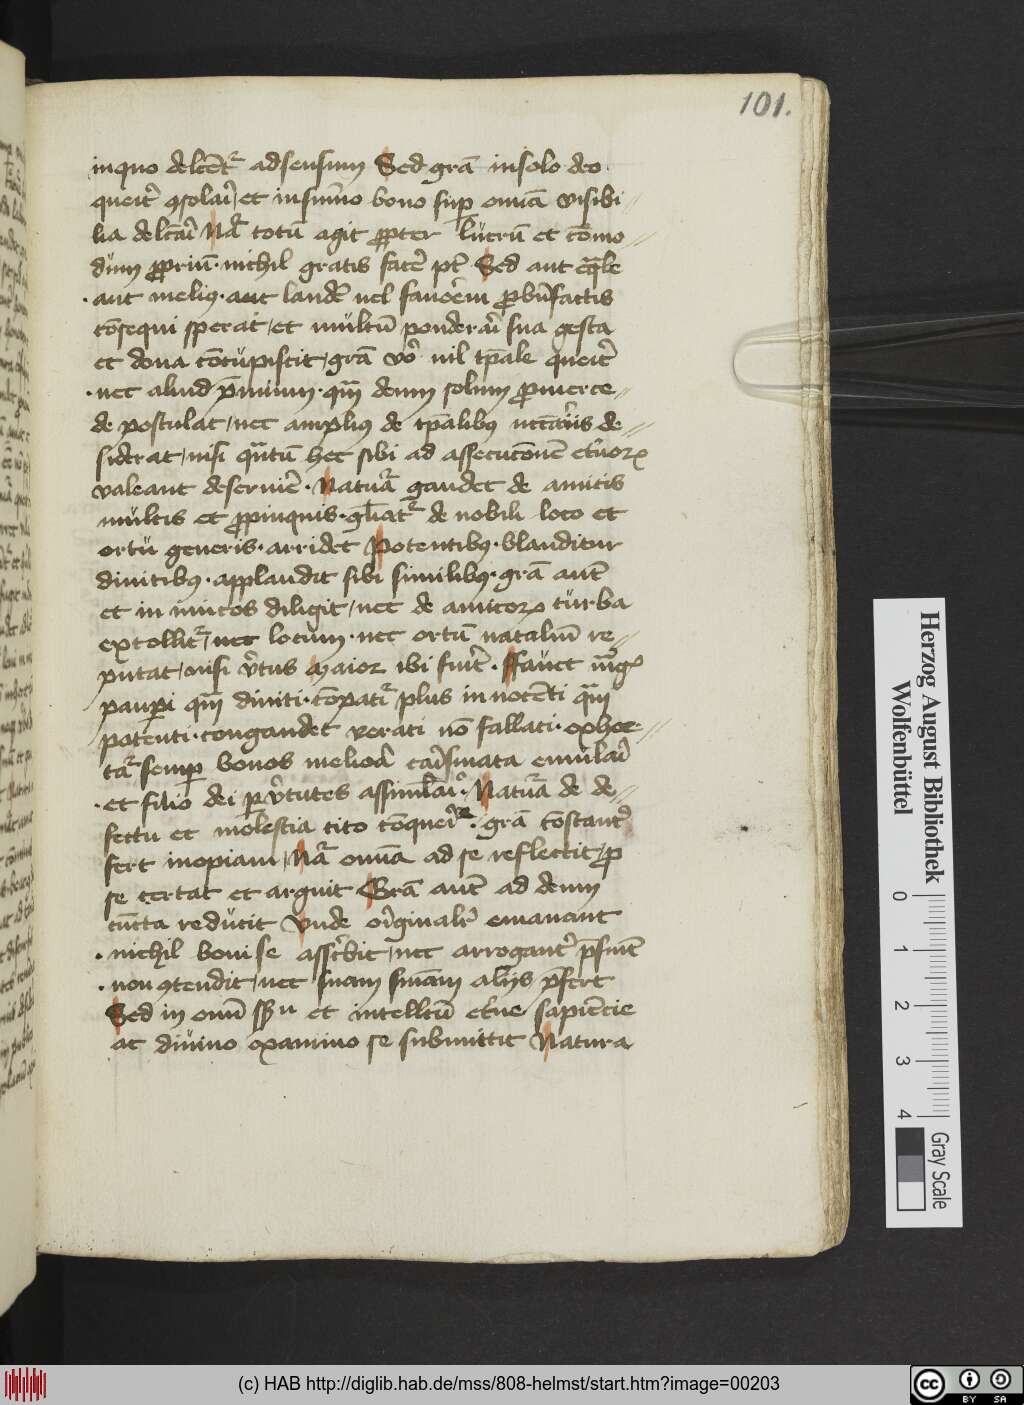 101.
inquo delcēt͛ adsensum Sed grā insolo deo
querit͛ ꝯsolari / et insummo bono suꝑ omīa visibi //
lia delcāri Nā totū agit ꝓpter lucrū et cōmo //
dum ꝓpriū · nichil gratis facē pt͛ Sed aut eq̄le
· aut meliꝰ · aut laudē uel fauorem ꝓ bn̄factis
cōsequi sperat / et multū ponderari sua gesta
et dona cōcupiscit / grā vo͛ nil tp̄ale querit͛
· nec aliud p̄mium · quā deum solum ꝓ merce //
de postulat / nec ampliꝰ de tp̄alibꝰ nccāriis de //
siderat / nisi q̄ntū hec sibi ad assecucōnē et͛noꝝ
valeant deseruirē · Natura gaudet de amicis
multis et ꝓpinquis · gl̄iat͛ de nobili loco et
ortu generis · arridet Potentibꝰ · blanditur
diuitibꝰ · applaudit sibi similibꝰ · grā aut̄
et in imicos diligit / nec de amicoꝝ turba
extollit͛ / nec locum · nec ortū nataliū re //
putat / nisi v͛tus maior ibi fuit͛ · ffauet magꝰ
pauꝑi quā diuiti · cōpatit͛ plus innocēti quā
potenti · congaudet veraci nō fallaci · exhor //
tat͛ semꝑ bonos meliora carismata emulari
· et filio dei ꝑ v͛tutes assimilari · Natura de de //
fectu et molestia cito cōquerit͛ · grā cōstant͛
fert inopiam / Nā omīa ad se reflectit / ꝓ
se certat et arguit Grā aut̄ ad deum
cūcta reducit Vnde originalit͛ emanant
· nichil boni se asscribit / nec arrogant͛ p̄sumit
· non ꝯtendit / nec suam sn̄iam aliis p̄fert
Sed in omī sensu et intellcū et͛ne sapiēcie
ac diuino examino se submittit Natura
Herzog August Bibliothek
Wolfenbüttel
0 1 2 3 4
Gray Scale
(c) HAB http://diglib.hab.de/mss/808-helmst/start.htm?image=00203
cc BY SA